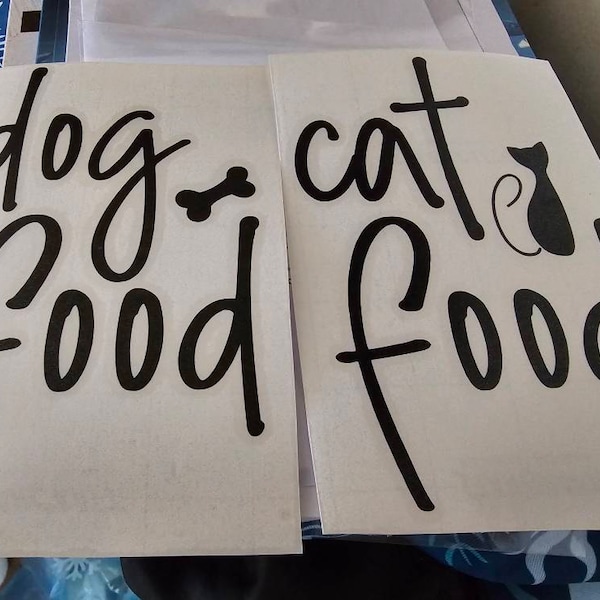 dog
food
cat
food